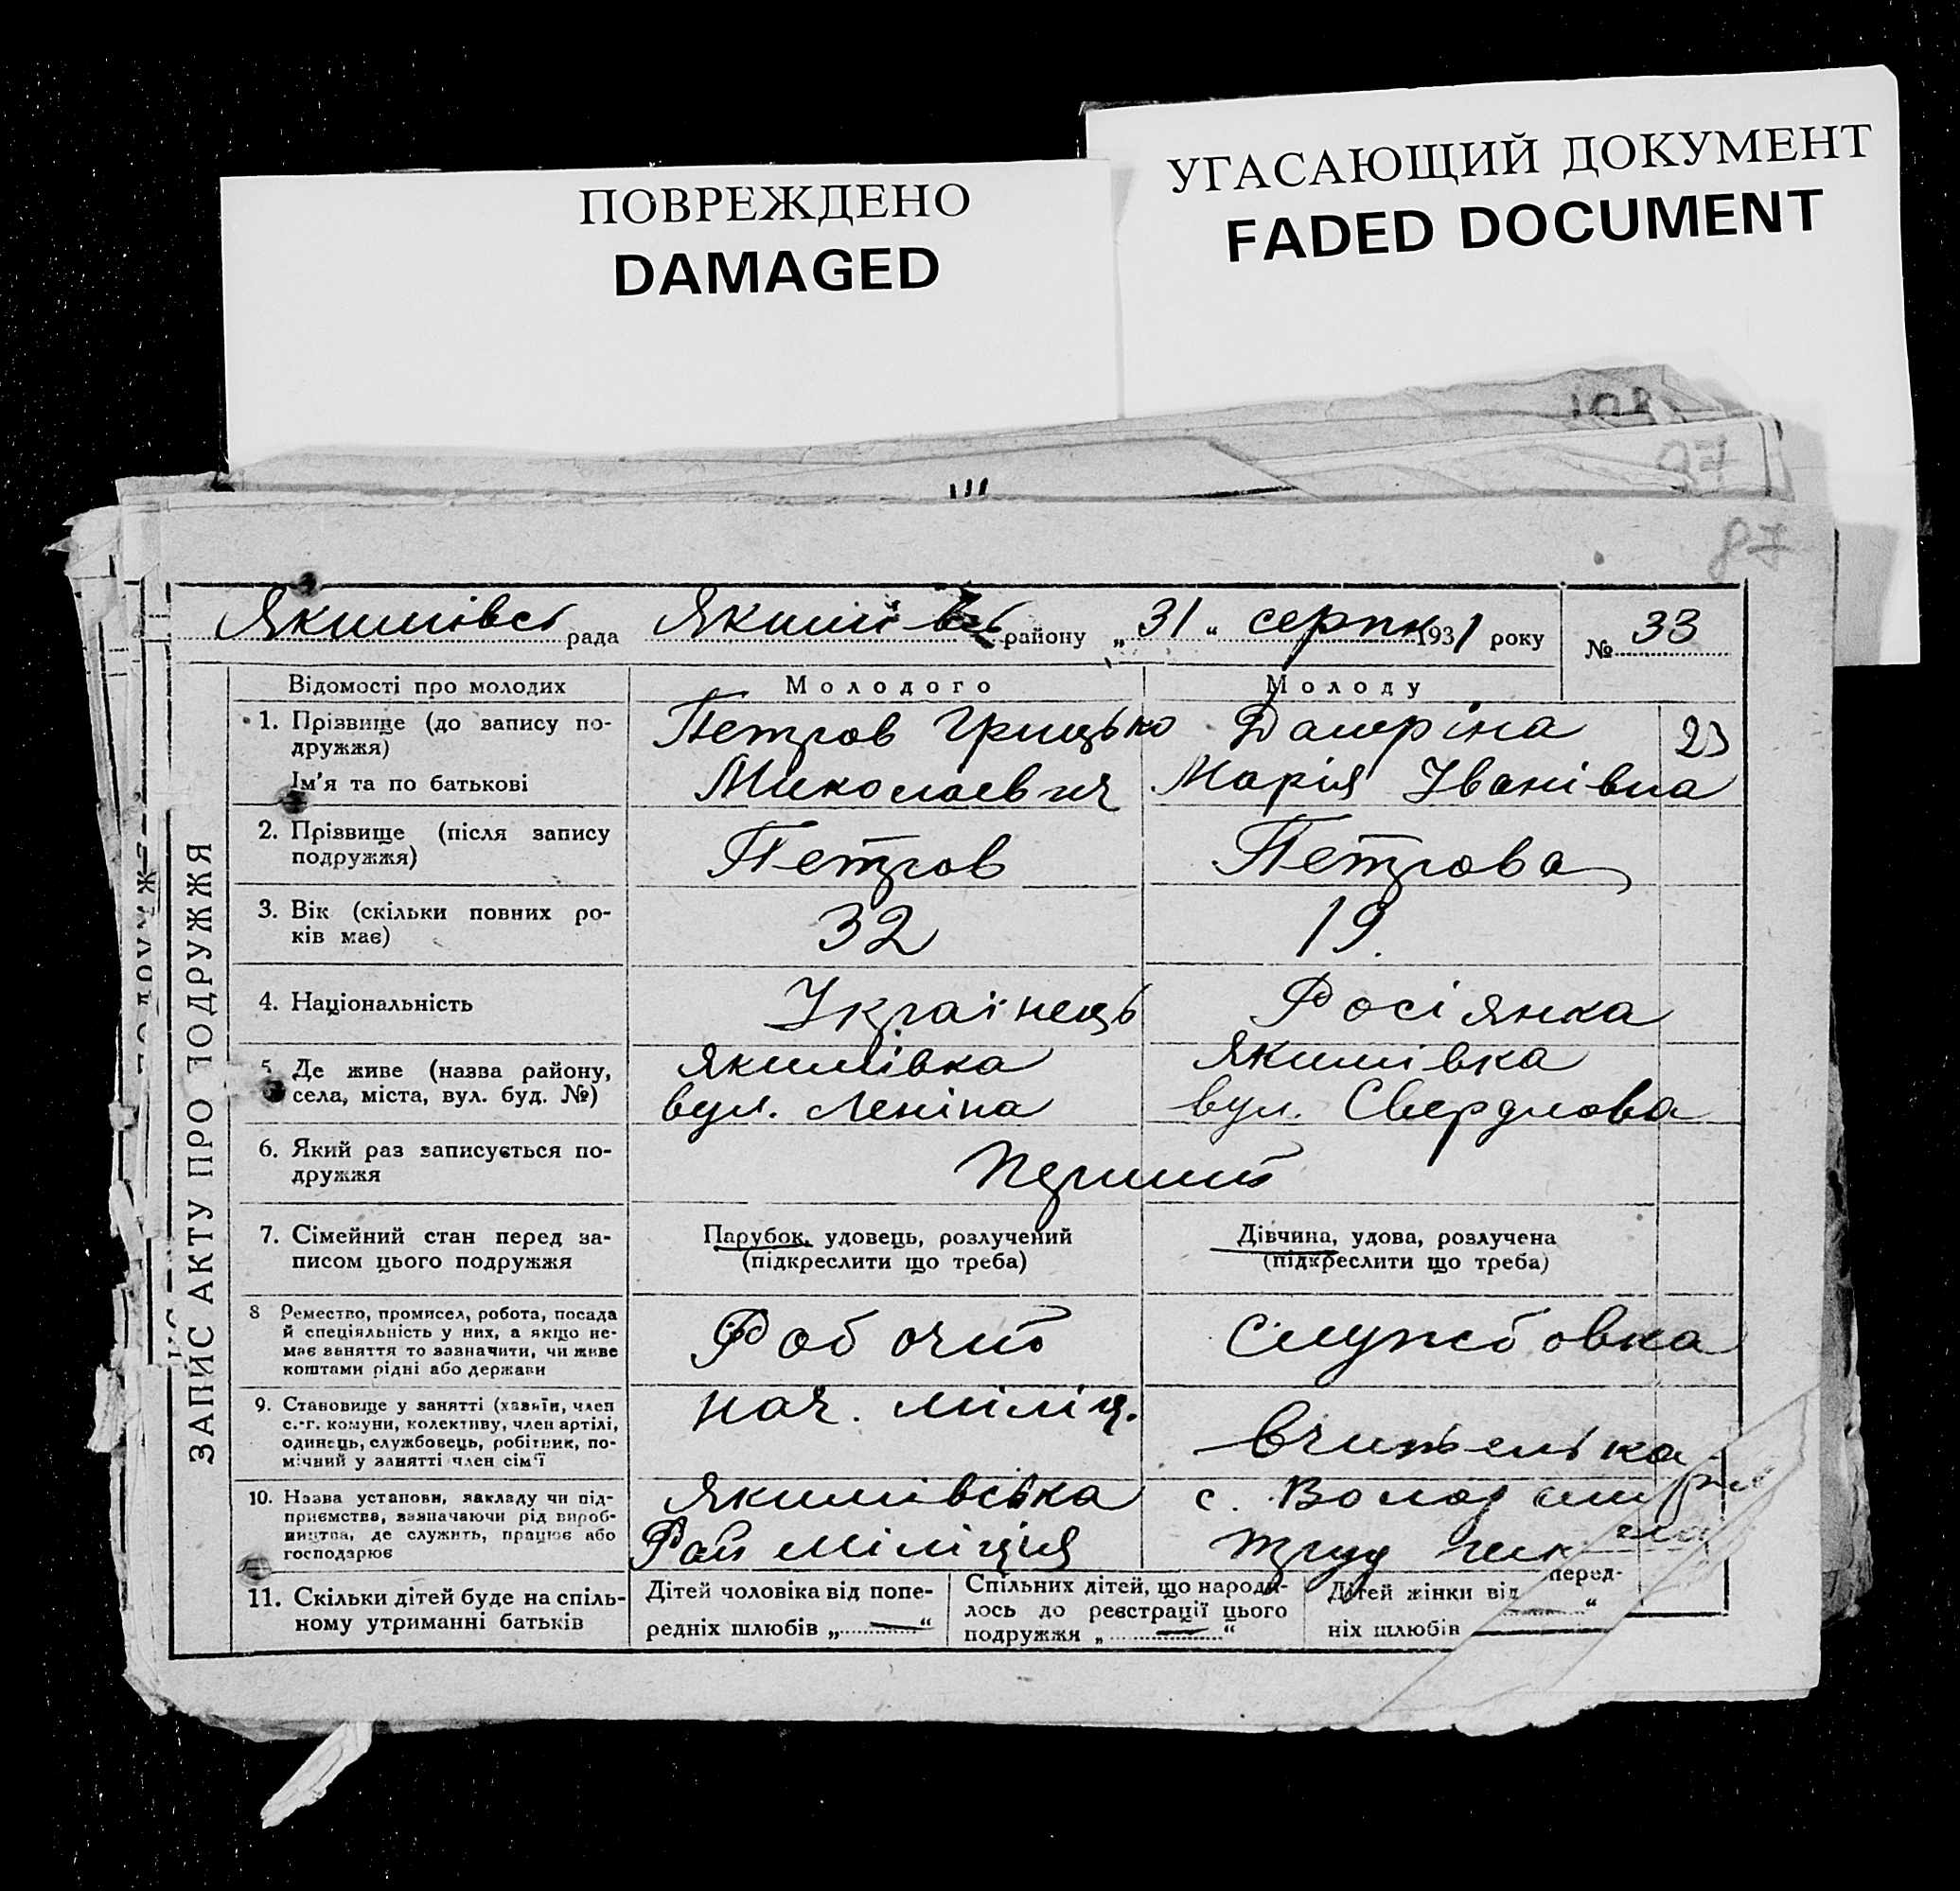 ПОВРЕЖДЕНО
DAMAGED
УГАСАЮЩИЙ ДОКУМЕНТ
FADED DOCUMENT
97
87
Якимівсь рада Якимівсь району „31“ серпн 1931 року № 33
ЗАПИС АКТУ ПРО ПОДРУЖЖЯ
Відомості про молодих Молодого Молоду
1. Прізвище (до запису по- Петров Грицько 23
дружжя)
Ім'я та по батькові Миколаевич Марія Іванівна
2. Прізвище (після запису Петров Петрова
подружжя)
3. Вік (скільки повних ро- 32 19.
ків має)
4. Національність Українець Росіянка
5. Де живе (назва району, Якимівка Якимівка
села, міста, вул. буд. №) вул. Леніна вул. Свердлова
6. Який раз записується по- Перший
дружжя
7. Сімейний стан перед за- Парубок, удовець, розлучений Дівчина, удова, розлучена
писом цього подружжя (підкреслити що треба) (підкреслити що треба)
8 Ремество, промисел, робота, посада Робочий Службовка
й спеціяльність у них, а якщо не-
має заняття то зазначити, чи живе
коштами рідні або держави
9. Становище у занятті (хазяїн, член нач. міліц. вчителька
с.-г. комуни, колективу, член артілі,
одинець, службовець, робітник, по-
мічний у занятті член сім'ї
10. Назва установи, закладу чи під- Якимівська с.
приємства, зазначаючи рід вироб- Рай міліція труд
ництва, де служить, працює або
господарює
11. Скільки дітей буде на спіль- Дітей чоловіка від попе- Спільних дітей, що народи- Дітей жінки від перед-
ному утриманні батьків редніх шлюбів „—“ лось до реєстрації цього ніх шлюбів “
подружжя „—“